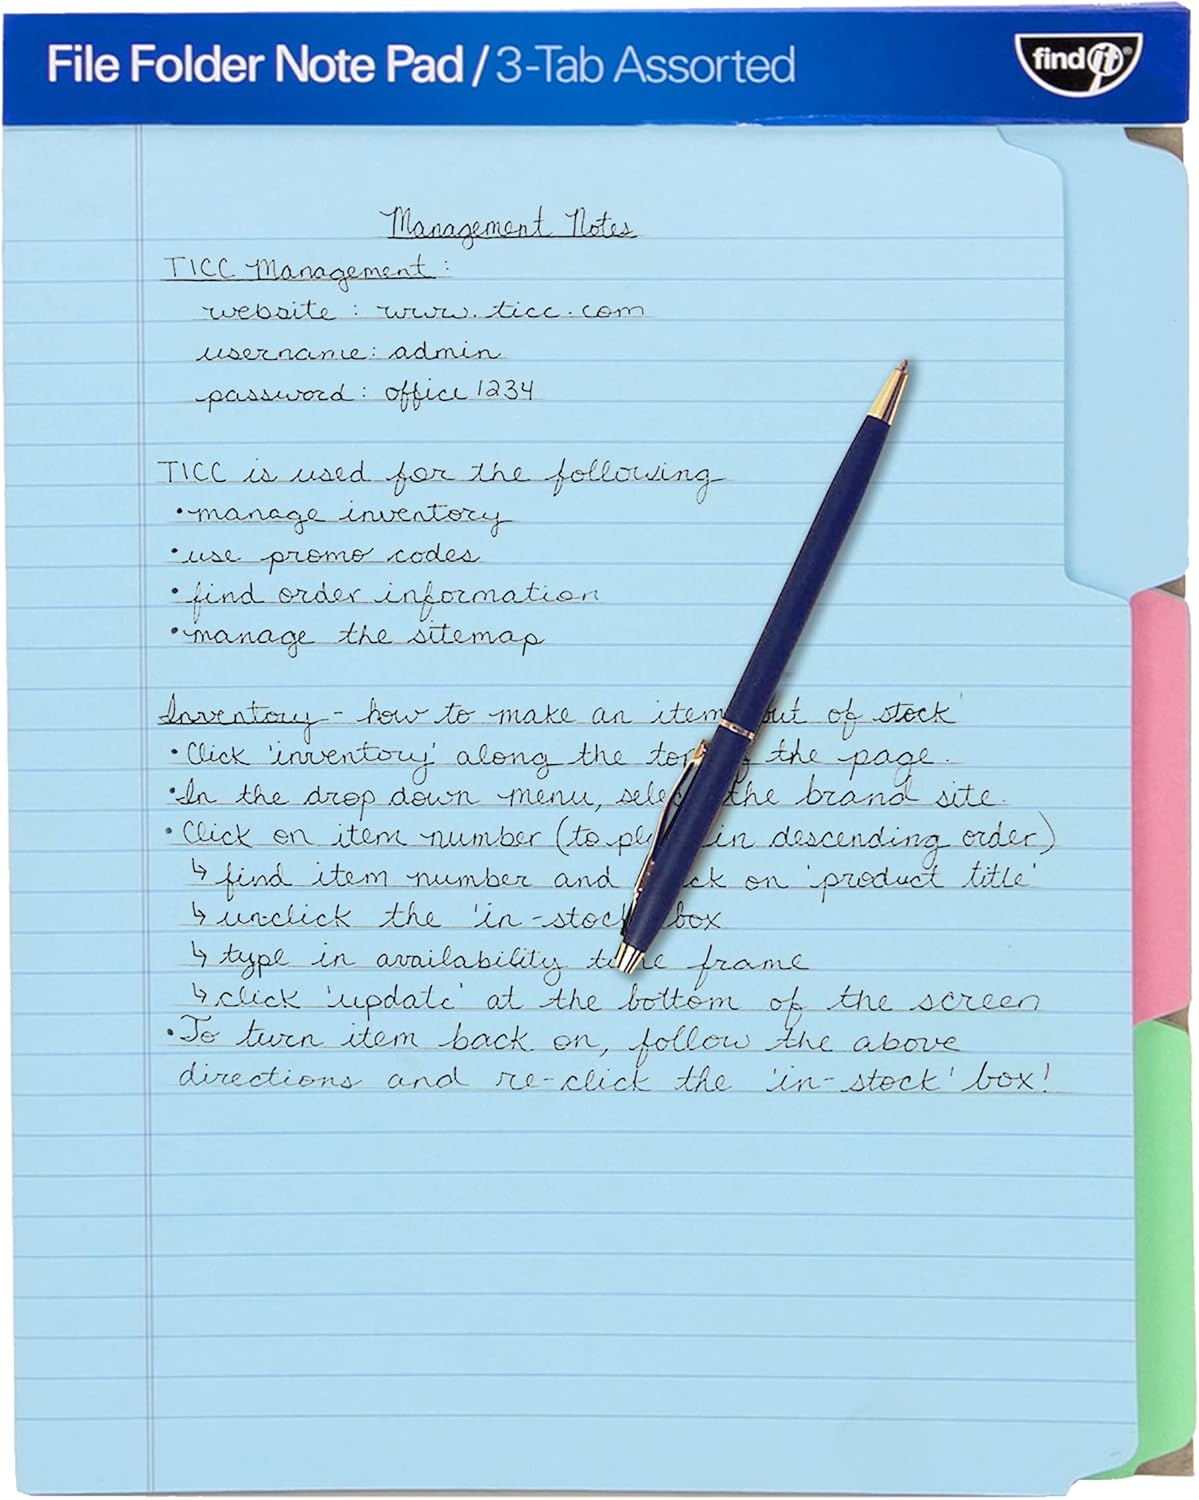 File Folder Note Pad / 3-Tab Assorted
find it®
Management Notes
TICC Management:
website: www.ticc.com
username: admin
password: office1234
TICC is used for the following
•manage inventory
•use promo codes
•find order information
•manage the sitemap
Inventory - how to make an item out of stock
•Click 'inventory' along the top the page.
•In the drop down menu, select the brand site.
•Click on item number (to in descending order)
↳ find item number and click on 'product title'
↳ unclick the 'in-stock' box
↳ type in availability time frame
↳ click 'update' at the bottom of the screen
•To turn item back on, follow the above
directions and re-click the 'in-stock' box!